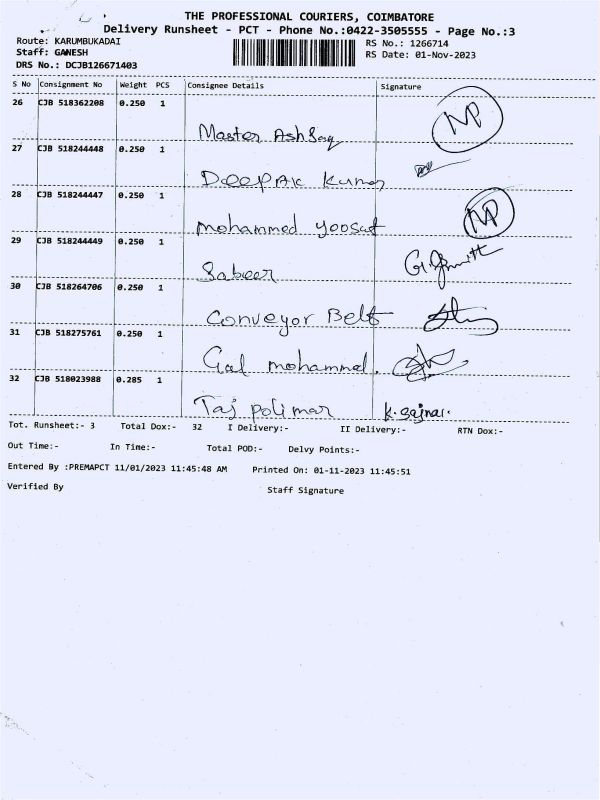 THE PROFESSIONAL COURIERS, COIMBATORE
Delivery Runsheet - PCT - Phone No.:0422-3505555 - Page No.:3
Route: KARUMBUKADAI RS No.: 1266714
Staff: GANESH RS Date: 01-Nov-2023
DRS No.: DCJB126671403
S No Consignment No Weight PCS Consignee Details Signature
26 CJB 518362208 0.250 1
Master NP
27 CJB 518244448 0.250 1
Deepak Kumar
28 CJB 518244447 0.250 1
Mohammed Yoosuf NP
29 CJB 518244449 0.250 1
Sabeer
30 CJB 518264706 0.250 1
Conveyor Belt
31 CJB 518275761 0.250 1
Gal mohammed.
32 CJB 518023988 0.285 1
Taj polimar K. Sajna.
Tot. Runsheet:- 3 Total Dox:- 32 I Delivery:- II Delivery:- RTN Dox:-
Out Time:- In Time:- Total POD:- Delvy Points:-
Entered By :PREMAPCT 11/01/2023 11:45:48 AM Printed On: 01-11-2023 11:45:51
Verified By Staff Signature